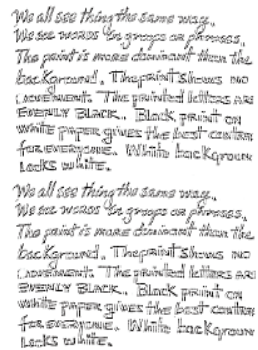 We all see thing the same way.
We see words in groups or phrases.
The print is more dominant than the
background. The print shows no
movement. The printed letters are
EVENLY BLACK. Black print on
white paper gives the best contra
for everyone. White backgroun
looks white.
We all see thing the same way.
We see words in groups or phrases.
The print is more dominant than the
background. The print shows no
movement. The printed letters are
EVENLY BLACK. Black print on
white paper gives the best contra
for everyone. White backgroun
looks white.